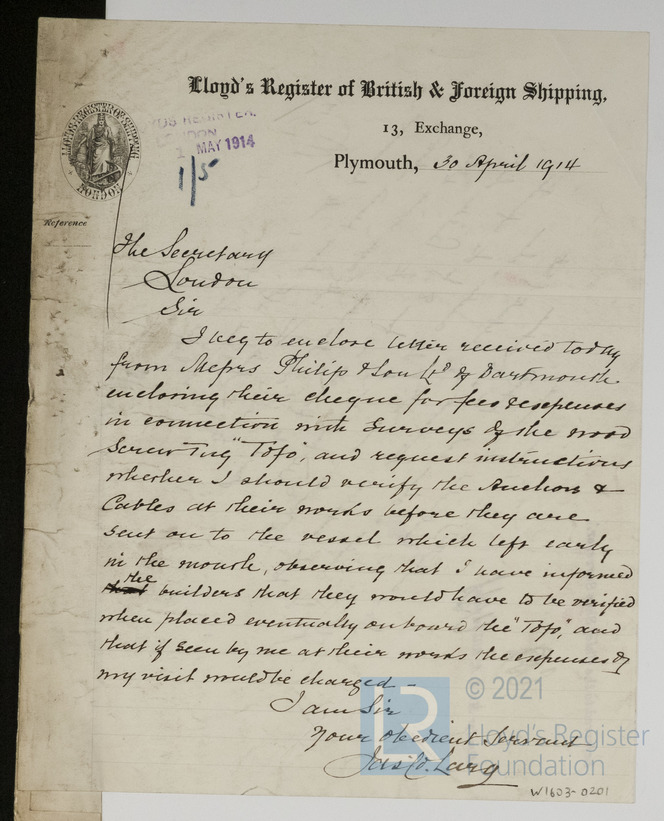 Lloyd's Register of British & Foreign Shipping,
13, Exchange,
Plymouth, 30 April 1914
LLOYD'S REGISTER OF SHIPPING
LONDON
LONDON
1 MAY 1914
1/5
Reference
The Secretary
London
Sir
I beg to enclose letter received today
from Messrs Philip & Son Ltd of Dartmouth
enclosing their cheque for fees & expenses
in connection with Surveys of the wood
Screw Tug "Tofo", and request instructions
whether I should verify the Anchors &
Cables at their works before they are
sent on to the vessel which left early
in the month, observing that I have informed
the builders that they would have to be verified
when placed eventually on board the "Tofo", and
that if seen by me at their works the expenses of
my visit would be charged -
I am Sir
Your Obedient Servant
Jas. Larg
LR
© 2021
Lloyd's Register
Foundation
W1603-0201